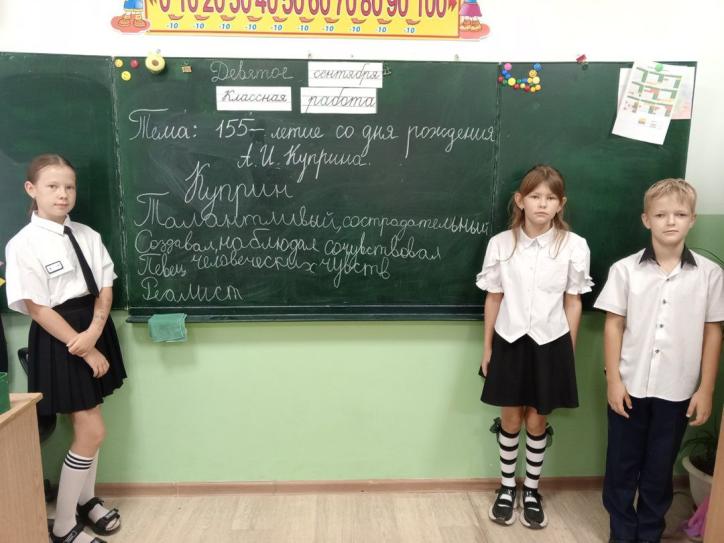 0 10 20 30 40 50 60 70 80 90 100
-10 -10 -10 -10 -10 -10 -10 -10 -10 -10
Девятое сентября
Классная работа
Тема: 155-летие со дня рождения
А.И. Куприна.
Куприн
Талантливый, сострадательный
Создавал, наблюдал сочувствовал
Певец человеческих чувств
Реалист